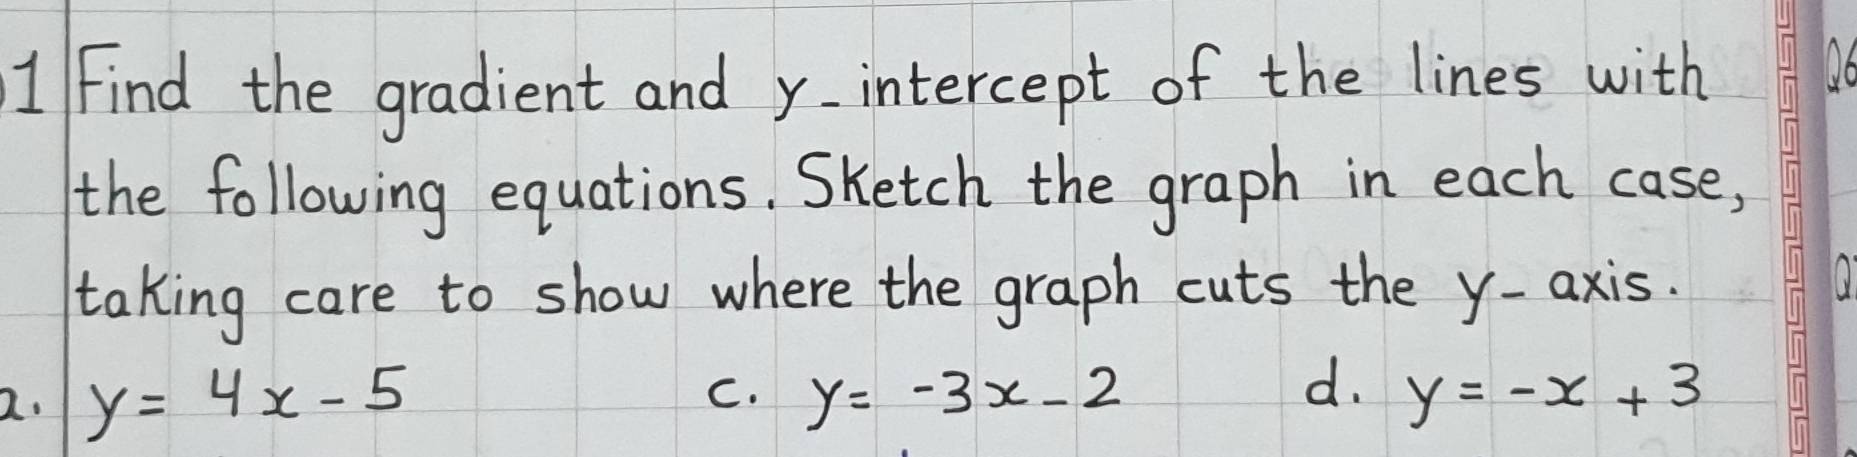 1 Find the gradient and y-intercept of the lines with
the following equations. Sketch the graph in each case,
taking care to show where the graph cuts the y-axis.
a. y = 4x - 5 c. y = -3x - 2 d. y = -x + 3
Q6